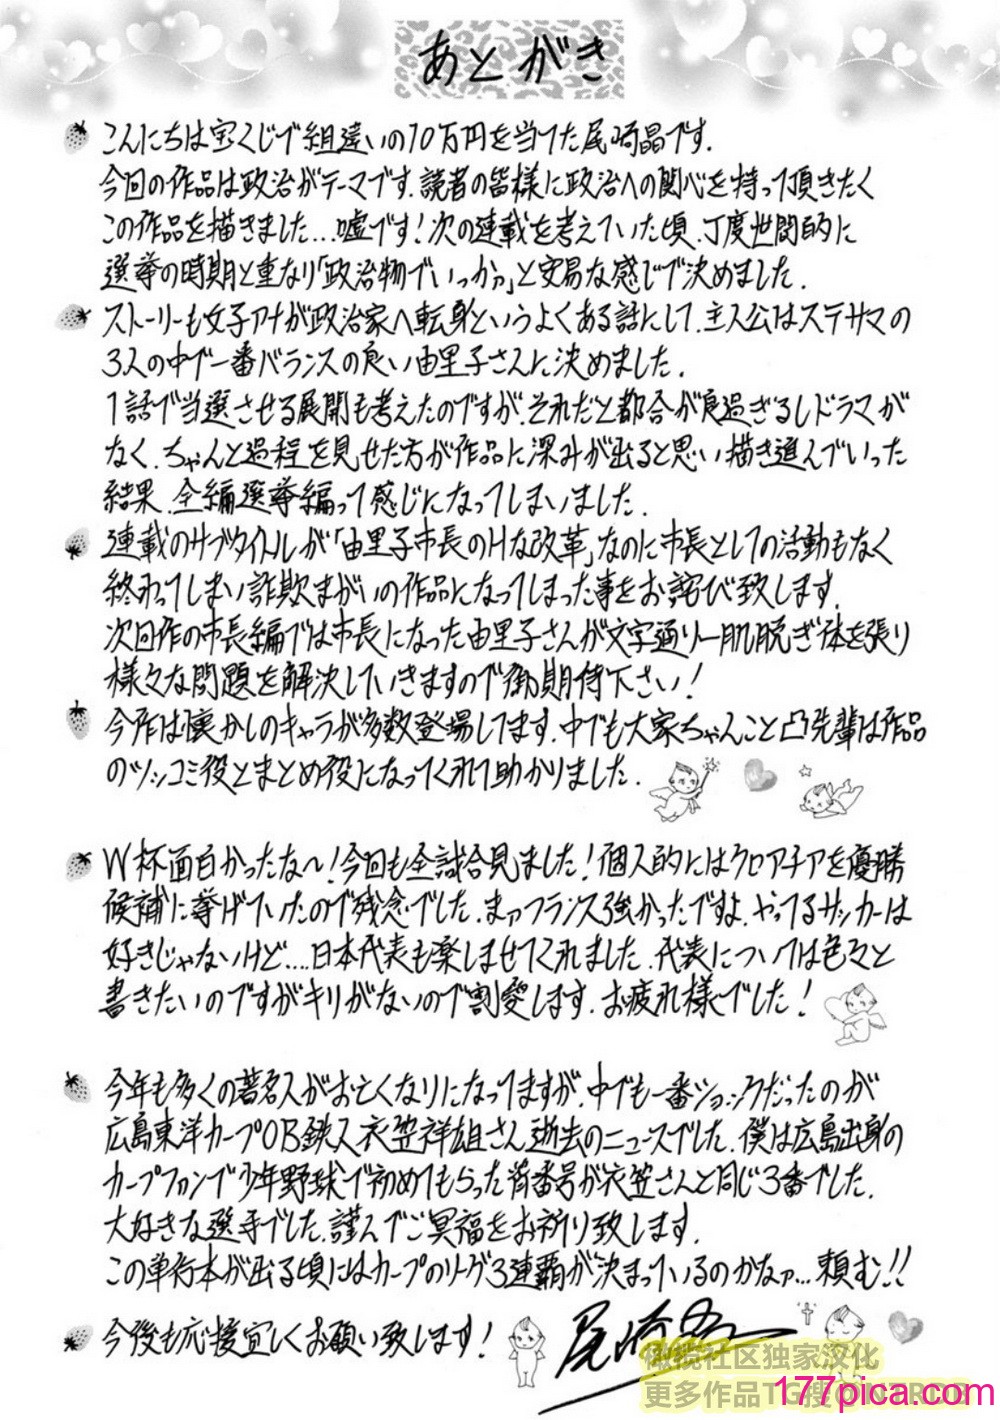 あとがき
こんにちは宝くじで組違いの10万円を当てた尾崎晶です.
今回の作品は政治がテーマです.読者の皆様に政治への関心を持って頂きたく
この作品を描きました…嘘です!次の連載を考えていた頃.丁度世間的に
選挙の時期と重なり「政治物でいっかァ」と安易な感じで決めました.
ストーリーも女子アナが政治家へ転身というよくある話にして.主人公はステサマの
3人の中で一番バランスの良い由里子さんに決めました.
1話で当選させる展開も考えたのですが.それだと都合が良過ぎるしドラマが
なく.ちゃんと過程を見せた方が作品に深みが出ると思い描き進んでいった
結果.全編選挙編って感じになってしまいました.
連載のサブタイトルが「由里子市長のHな改革」なのに市長としての活動もなく
終わってしまい詐欺まがいの作品になってしまった事をお詫び致します.
次回作の市長編では市長になった由里子さんが文字通り一肌脱ぎ体を張り
様々な問題を解決していきますので御期待下さい!
今作は懐かしのキャラが多数登場してます.中でも大家ちゃんこと凸先輩は作品
のツッコミ役とまとめ役になってくれて助かりました.
W杯面白かったな〜!今回も全試合見ました!個人的にはクロアチアを優勝
候補に挙げていたので残念でした.まァフランス強かったですよ.やってるサッカーは
好きじゃないけど....日本代表も楽しませてくれました.代表については色々と
書きたいのですがキリがないので割愛します.お疲れ様でした!
今年も多くの著名人がお亡くなりになってますが.中でも一番ショックだったのが
広島東洋カープOB鉄人衣笠祥雄さん逝去のニュースでした.僕は広島出身の
カープファンで少年野球で初めてもらった背番号が衣笠さんと同じ3番でした.
大好きな選手でした.謹んでご冥福をお祈り致します.
この単行本が出る頃にはカープのリーグ3連覇が決まっているのかなァ…頼む!!
今後も応援宜しくお願い致します!
尾崎晶
橄榄社区独家汉化
更多作品TG搜@INTRDB
177pica.com